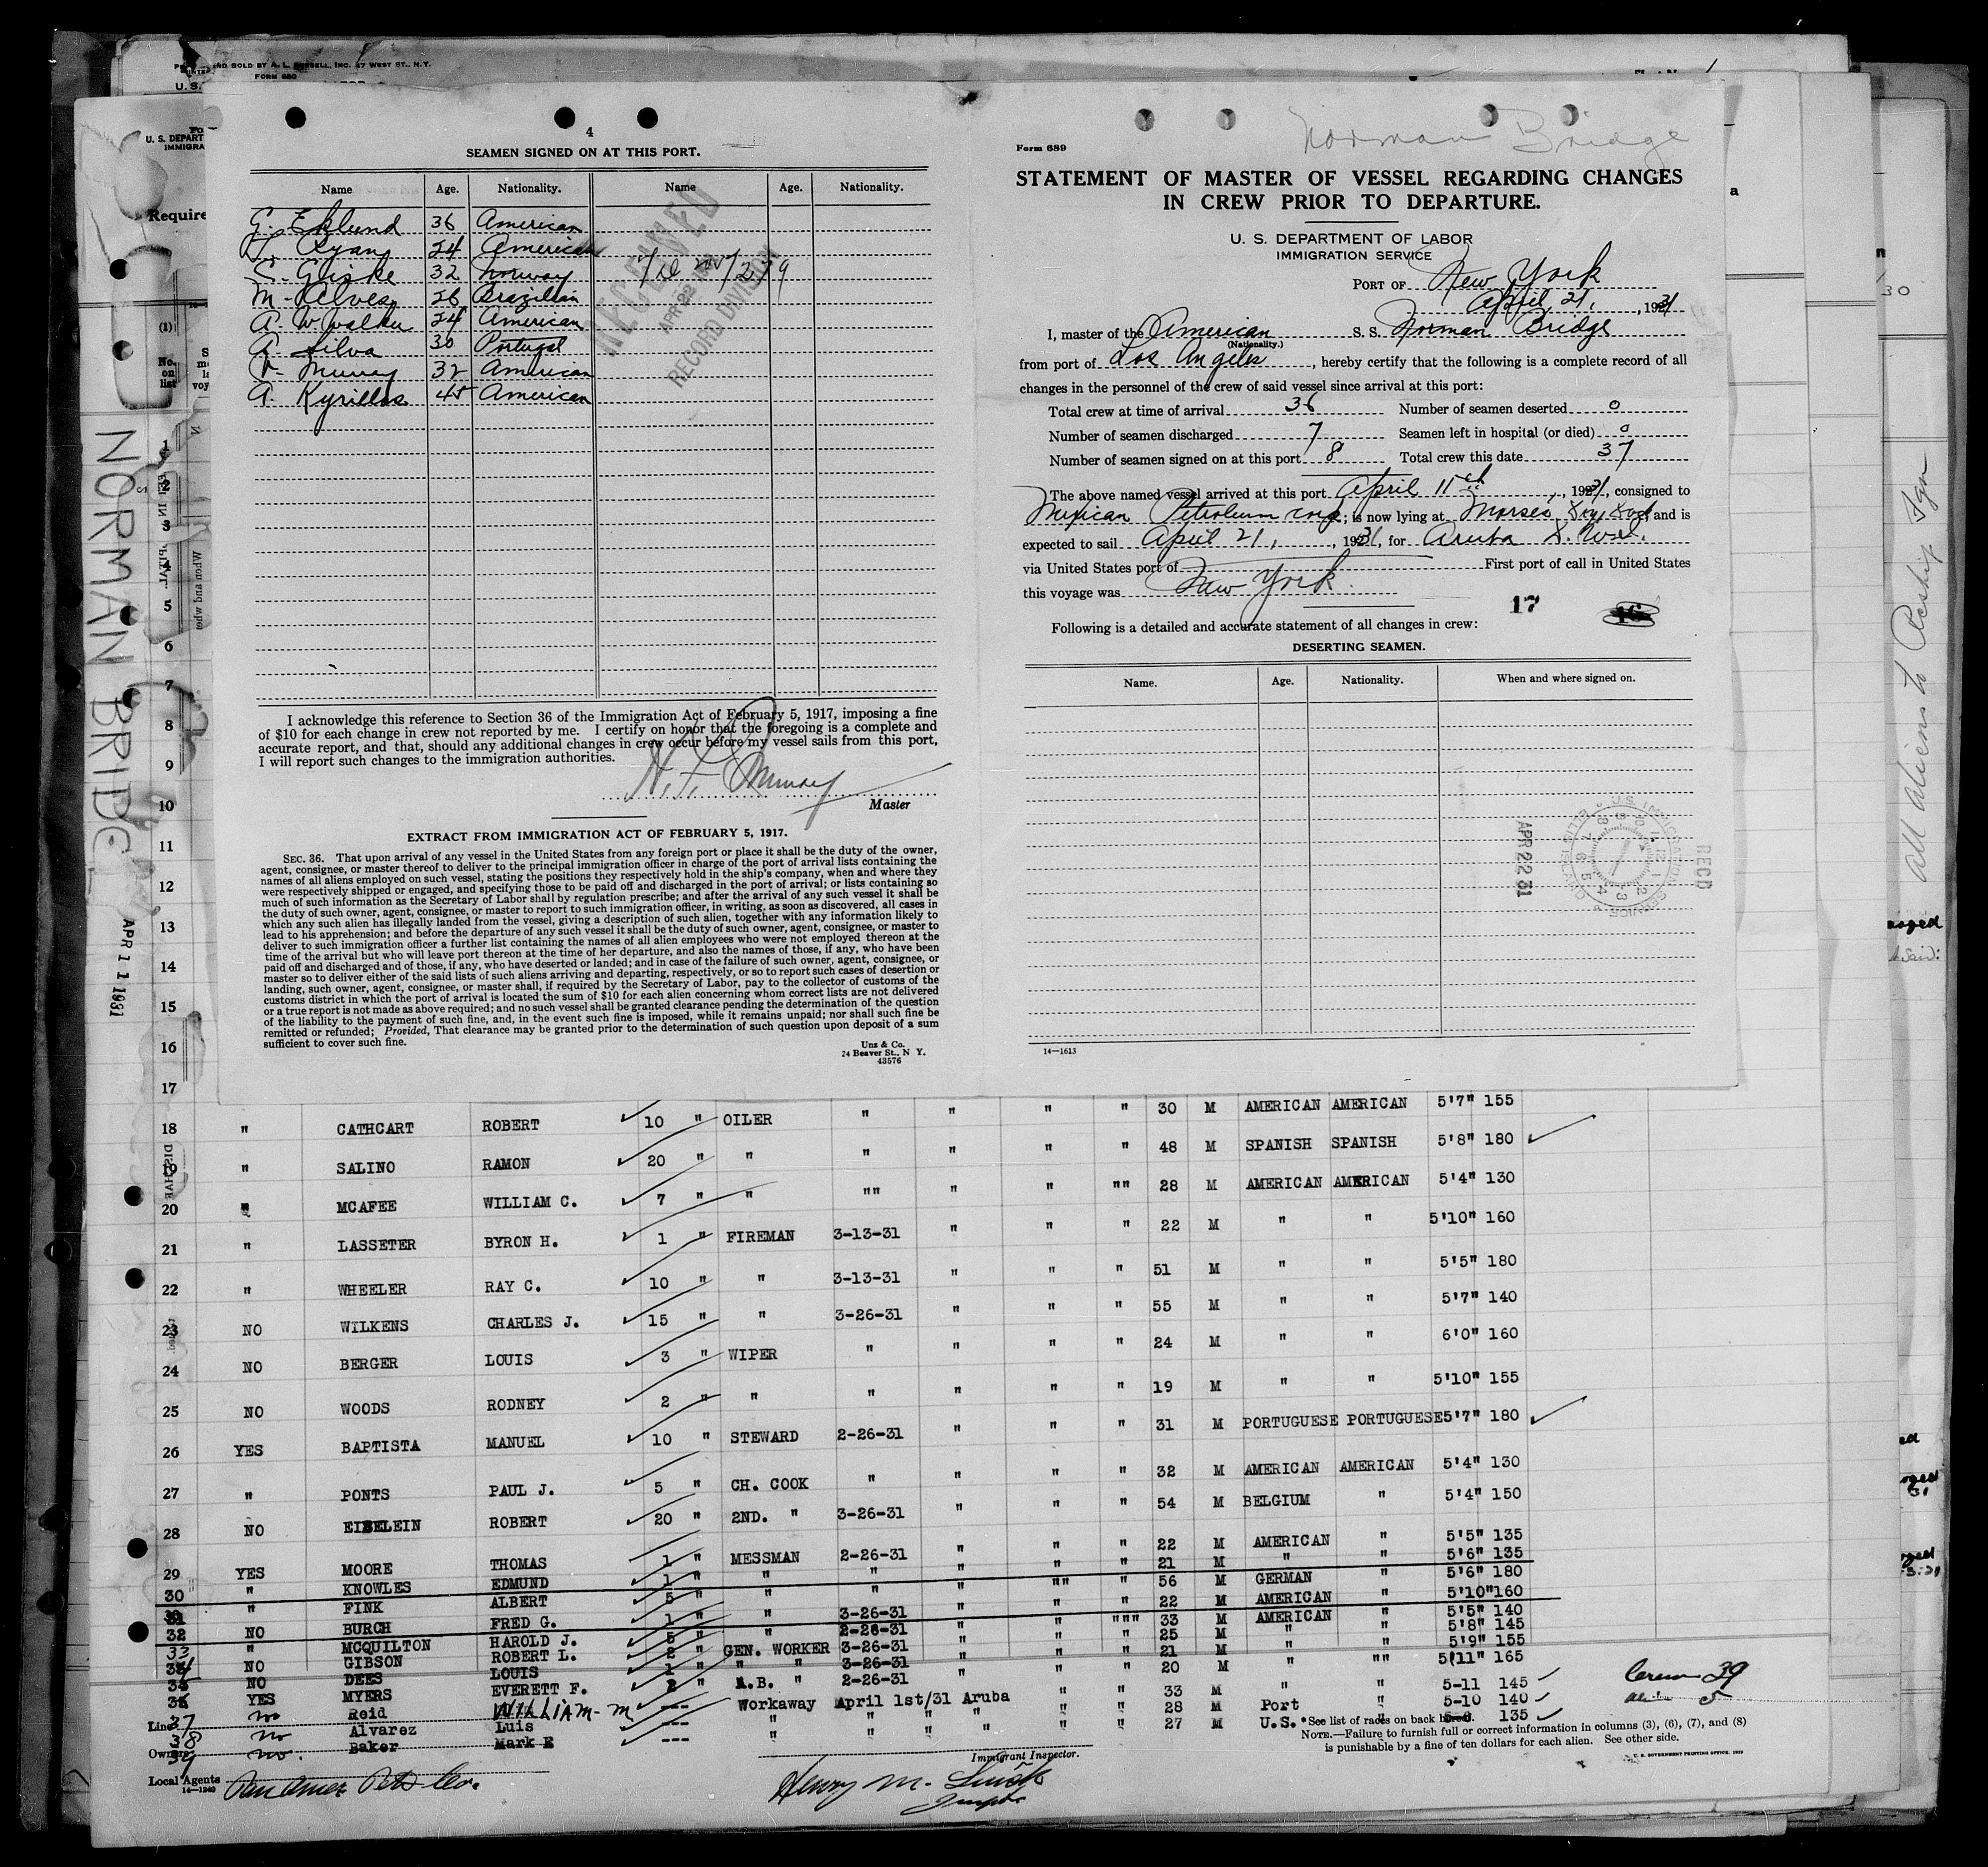 PRINTED AND SOLD BY A. L. RUSSELL, INC. 27 WEST ST., N. Y.
FORM 680
U. S. DEPART
IMMIGRA
Require
NORMAN BRIDGE
APR 11 1931
4
SEAMEN SIGNED ON AT THIS PORT.
Name Age. Nationality. Name Age. Nationality.
G. Eklund 36 American
Ryany 24 American
S. Giske 32 Norway
M. Alves 26 Brazilian
A. W Walker 24 American
A. Silva 30 Portugal
V. Murray 32 American
A. Kyrillos 45 American
RECEIVED
APR 22 1931
RECORD DIVISION
I acknowledge this reference to Section 36 of the Immigration Act of February 5, 1917, imposing a fine
of $10 for each change in crew not reported by me. I certify on honor that the foregoing is a complete and
accurate report, and that, should any additional changes in crew occur before my vessel sails from this port,
I will report such changes to the immigration authorities.
Master
EXTRACT FROM IMMIGRATION ACT OF FEBRUARY 5, 1917.
SEC. 36. That upon arrival of any vessel in the United States from any foreign port or place it shall be the duty of the owner,
agent, consignee, or master thereof to deliver to the principal immigration officer in charge of the port of arrival lists containing the
names of all aliens employed on such vessel, stating the positions they respectively hold in the ship's company, when and where they
were respectively shipped or engaged, and specifying those to be paid off and discharged in the port of arrival; or lists containing so
much of such information as the Secretary of Labor shall by regulation prescribe; and after the arrival of any such vessel it shall be
the duty of such owner, agent, consignee, or master to report to such immigration officer, in writing, as soon as discovered, all cases in
which any such alien has illegally landed from the vessel, giving a description of such alien, together with any information likely to
lead to his apprehension; and before the departure of any such vessel it shall be the duty of such owner, agent, consignee, or master to
deliver to such immigration officer a further list containing the names of all alien employees who were not employed thereon at the
time of the arrival but who will leave port thereon at the time of her departure, and also the names of those, if any, who have been
paid off and discharged and of those, if any, who have deserted or landed; and in case of the failure of such owner, agent, consignee, or
master so to deliver either of the said lists of such aliens arriving and departing, respectively, or so to report such cases of desertion or
landing, such owner, agent, consignee, or master shall, if required by the Secretary of Labor, pay to the collector of customs of the
customs district in which the port of arrival is located the sum of $10 for each alien concerning whom correct lists are not delivered
or a true report is not made as above required; and no such vessel shall be granted clearance pending the determination of the question
of the liability to the payment of such fine, and, in the event such fine is imposed, while it remains unpaid; nor shall such fine be
remitted or refunded; Provided, That clearance may be granted prior to the determination of such question upon deposit of a sum
sufficient to cover such fine.
Unz & Co.
24 Beaver St., N Y.
43576
Norman Bridge
Form 689
STATEMENT OF MASTER OF VESSEL REGARDING CHANGES
IN CREW PRIOR TO DEPARTURE.
U. S. DEPARTMENT OF LABOR
IMMIGRATION SERVICE
PORT OF New York
April 21, 1931
I, master of the American S. S. Norman Bridge
(Nationality.)
from port of Los Angeles, hereby certify that the following is a complete record of all
changes in the personnel of the crew of said vessel since arrival at this port:
Total crew at time of arrival 36 Number of seamen deserted 0
Number of seamen discharged 7 Seamen left in hospital (or died) 0
Number of seamen signed on at this port 8 Total crew this date 37
The above named vessel arrived at this port April 11th, 1931, consigned to
Mexican Petroleum Corp; is now lying at Morses Dry Dock and is
expected to sail April 21, 1931, for Aruba D. W.I.
via United States port of First port of call in United States
this voyage was New York.
17 16
Following is a detailed and accurate statement of all changes in crew:
DESERTING SEAMEN.
Name. Age. Nationality. When and where signed on.
REC'D
APR 22 31
U.S. IMMIGRATION SERVICE ELLIS
14—1613
All Aliens to Reship Fgn
18 " CATHCART ROBERT 10 " OILER " " " " 30 M AMERICAN AMERICAN 5'7" 155
19 " SALINO RAMON 20 " " " " " " 48 M SPANISH SPANISH 5'8" 180
20 " MCAFEE WILLIAM C. 7 " " "" " " "" 28 M AMERICAN AMERICAN 5'4" 130
21 " LASSETER BYRON H. 1 " FIREMAN 3-13-31 " " " 22 M " " 5'10" 160
22 " WHEELER RAY C. 10 " " 3-13-31 " " " 51 M " " 5'5" 180
23 NO WILKENS CHARLES J. 15 " " 3-26-31 " " " 55 M " " 5'7" 140
24 NO BERGER LOUIS 3 " WIPER " " " " 24 M " " 6'0" 160
25 NO WOODS RODNEY 2 " " " " " " 19 M " " 5'10" 155
26 YES BAPTISTA MANUEL 10 " STEWARD 2-26-31 " " " 31 M PORTUGUESE PORTUGUESE 5'7" 180
27 " PONTS PAUL J. 5 " CH. COOK " " " " 32 M AMERICAN AMERICAN 5'4" 130
28 NO EISELEIN ROBERT 20 " 2ND. " 3-26-31 " " " 54 M BELGIUM " 5'4" 150
29 YES MOORE THOMAS 1 " MESSMAN 2-26-31 " " " 22 M AMERICAN " 5'5" 135
30 " KNOWLES EDMUND 1 " " " " " " 21 M " " 5'6" 135
31 " FINK ALBERT 5 " " " " "" " 56 M GERMAN " 5'6" 180
32 NO BURCH FRED G. 1 " " 3-26-31 " " " 22 M AMERICAN " 5'10" 160
33 " MCQUILTON HAROLD J. 5 " " 2-26-31 " " """ 33 M AMERICAN " 5'5" 140
34 NO GIBSON ROBERT L. 2 " GEN. WORKER 3-26-31 " " " 25 M " " 5'8" 145
35 NO DEES LOUIS 1 " " " 3-26-31 " " " 21 M " " 5'9" 155
36 YES MYERS EVERETT F. 2 " A.B. " 2-26-31 " " " 20 M " "" 5'11" 165
37 no Reid WILLIAM-M --- Workaway April 1st/31 Aruba " " 33 M " " 5-11 145
38 no Alvarez Luis --- " " " " " " " 28 M Port " 5-10 140
39 no. Baker Mark E --- " " " " " " " 27 M U.S. 135
Crew 39
5
Line
Owners
Local Agents Pan Amer Petr Co.
14—1240
Henry M. Smith
Immigrant Inspector.
*See list of races on back hereof.
NOTE.—Failure to furnish full or correct information in columns (3), (6), (7), and (8)
is punishable by a fine of ten dollars for each alien. See other side.
U. S. GOVERNMENT PRINTING OFFICE, 1929